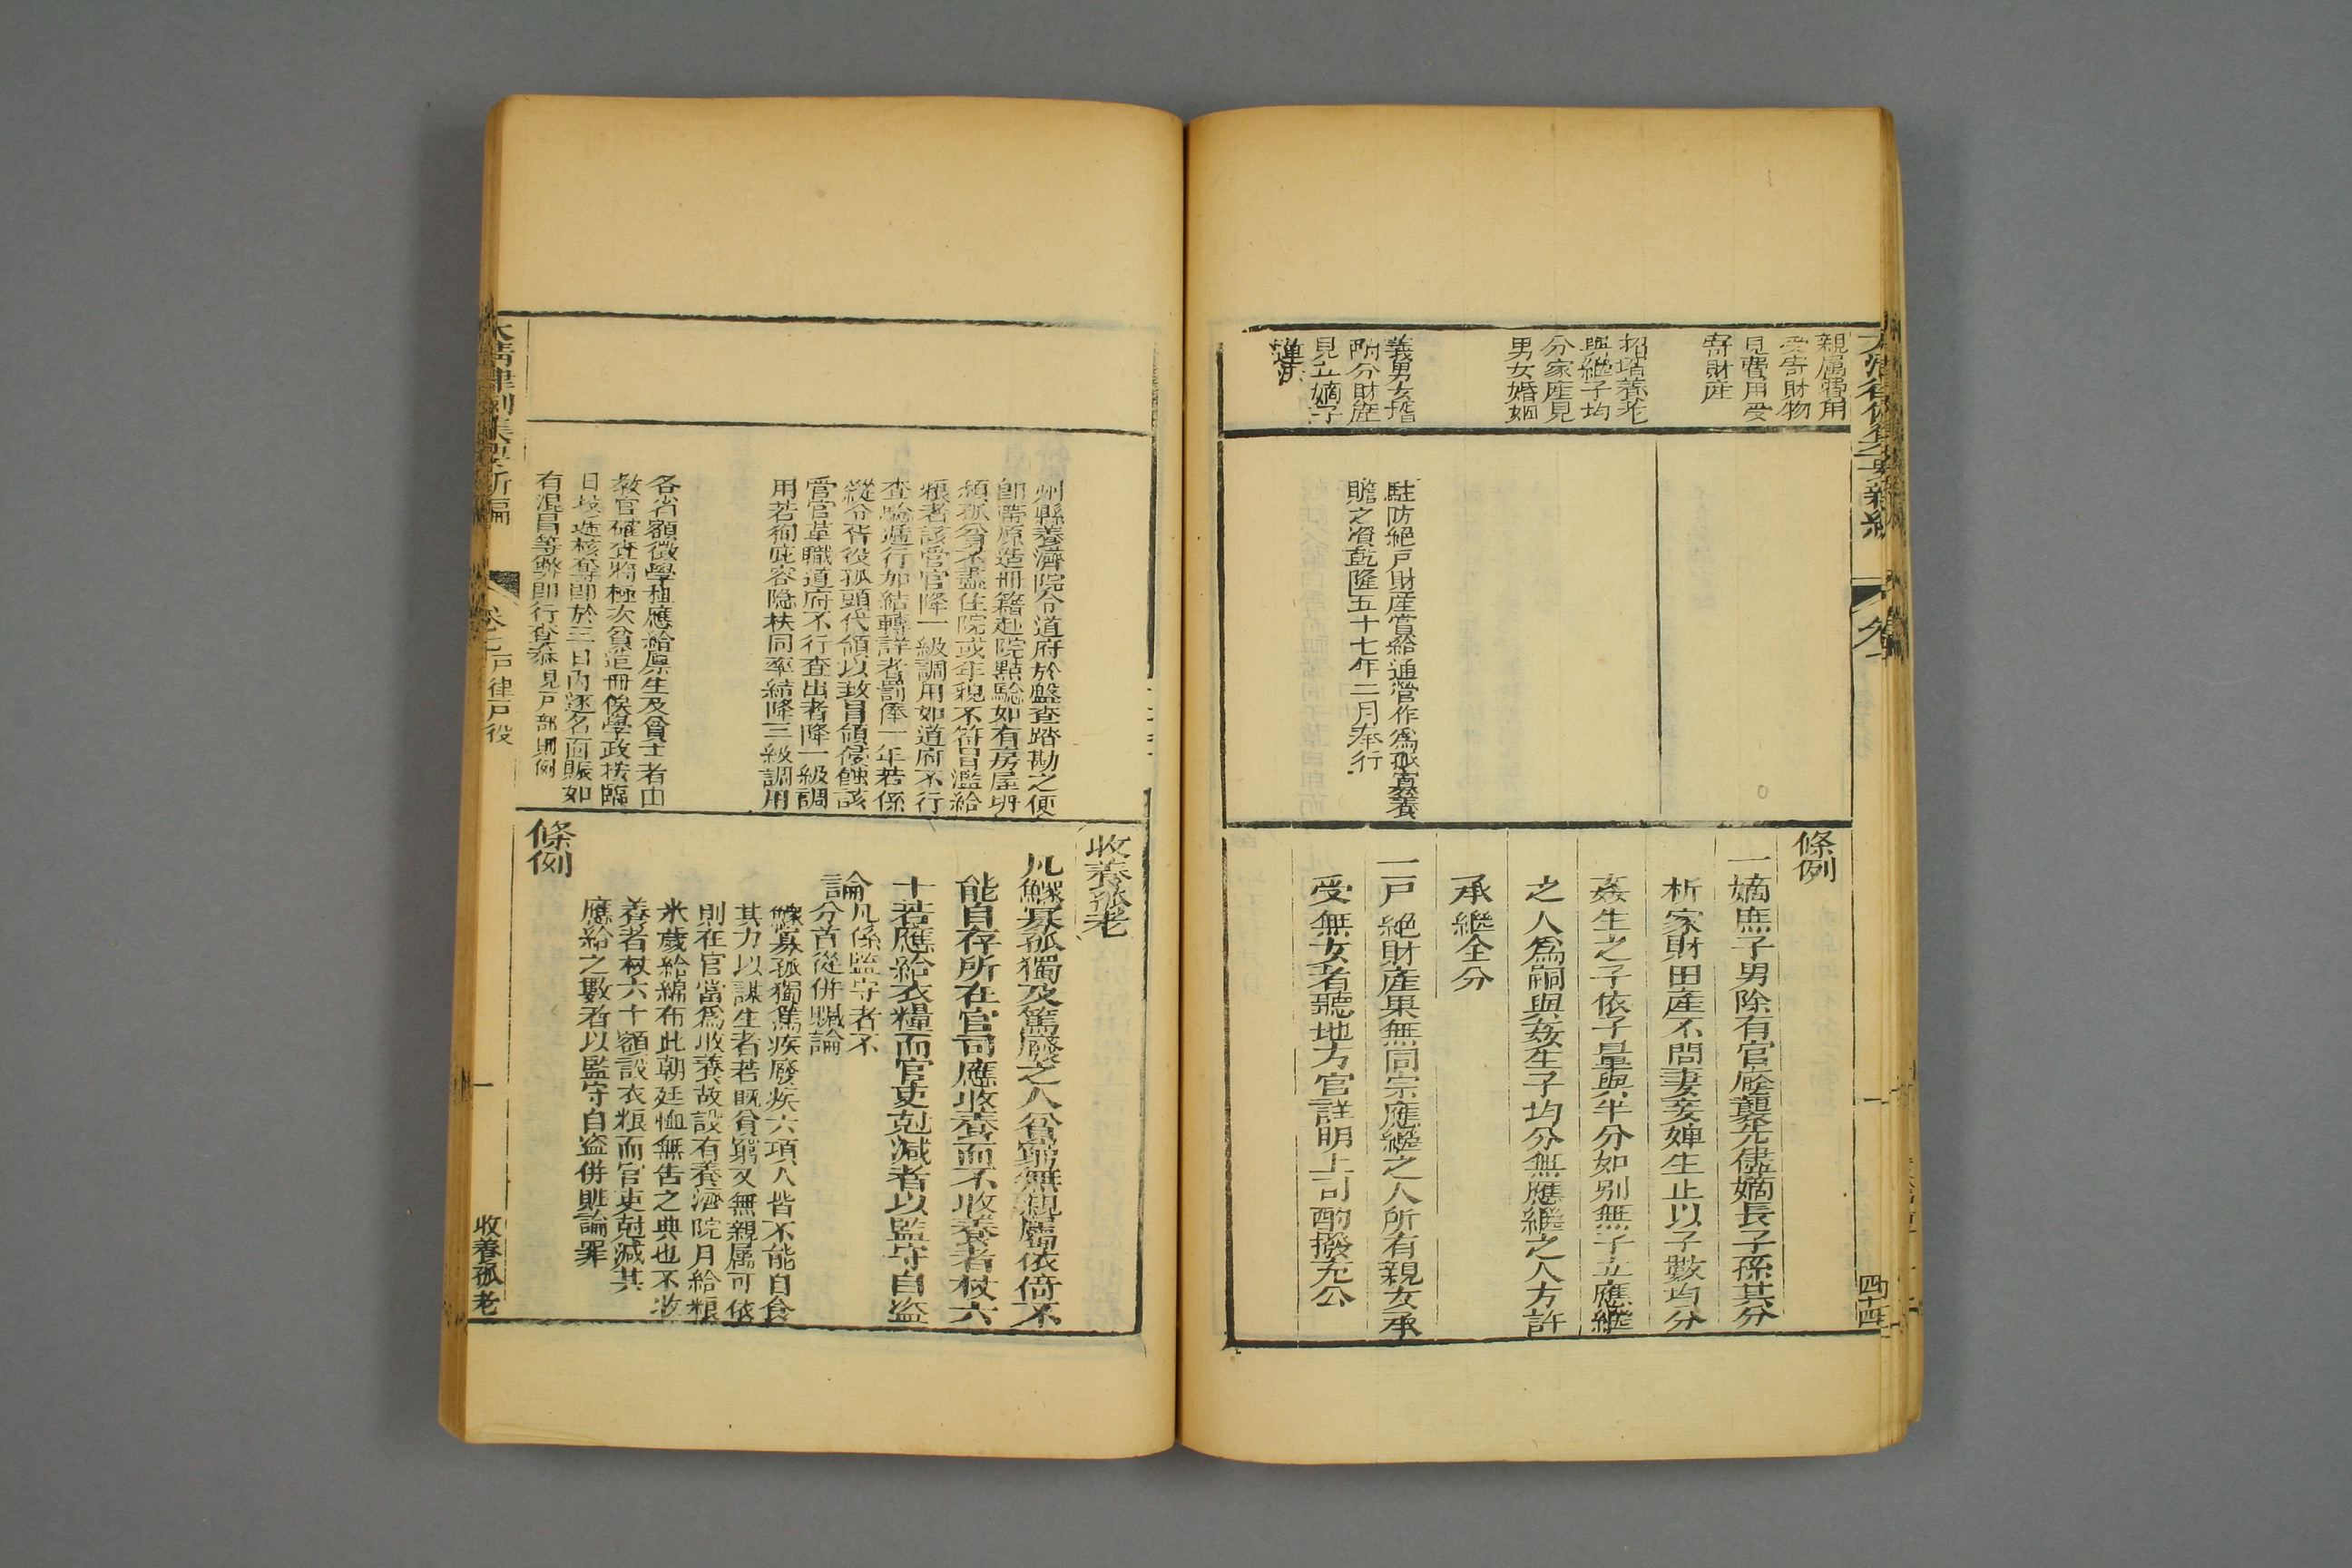 親属費用
受寄財物
見費用受
寄財産
招壻養老
與繼子均
分家産見
男女婚姻
義男女壻
酌分財産
見立嫡子
違法
駐防絕戸財産賞給通營作爲孤寡養
贍之資乾隆五十七年二月奉行
條例
一嫡庶子男除有官廕襲先儘嫡長子孫其分
析家財田産不問妻妾婢生止以子數均分
姦生之子依子量與半分如别無子立應繼
之人爲嗣與姦生子均分無應繼之人方許
承繼全分
一戸絕財産果無同宗應繼之人所有親女承
受無女者聽地方官詳明上司酌撥充公
四十四
州縣養濟院令道府於盤查踏勘之便
即帶原造冊籍赴院點驗如有房屋坍
頹孤貧不盡住院或年貌不符冒濫給
粮者該管官降一級調用如道府不行
查驗遽行加結轉詳者罰俸一年若係
縱令胥役孤頭代領以致冒領侵蝕該
管官革職道府不行查出者降一級調
用若徇庇容隐扶同率結降三級調用
各省額徵學租應給廪生及貧士者由
教官確查將極次貧造冊俟學政按臨
日投遞核奪即於三日內逐名面賑如
有混冒等獘即行查叅見戸部則例
收養孤老
凡鰥寡孤獨及篤廢之人貧窮無親屬依倚不
能自存所在官司應收養而不收養者杖六
十若應給衣糧而官吏尅減者以監守自盗
論凡係監守者不
分首從併贓論
鰥寡孤獨篤疾廢疾六項人皆不能自食
其力以謀生者若既貧窮又無親属可依
則在官當爲收養故設有養濟院月給粮
米歲給綿布此朝廷恤無告之典也不收
養者杖六十額設衣粮而官吏尅減其
應給之數者以監守自盗併賍論罪
條例
大清律例集要新編
卷七戸律戸役
收養孤老